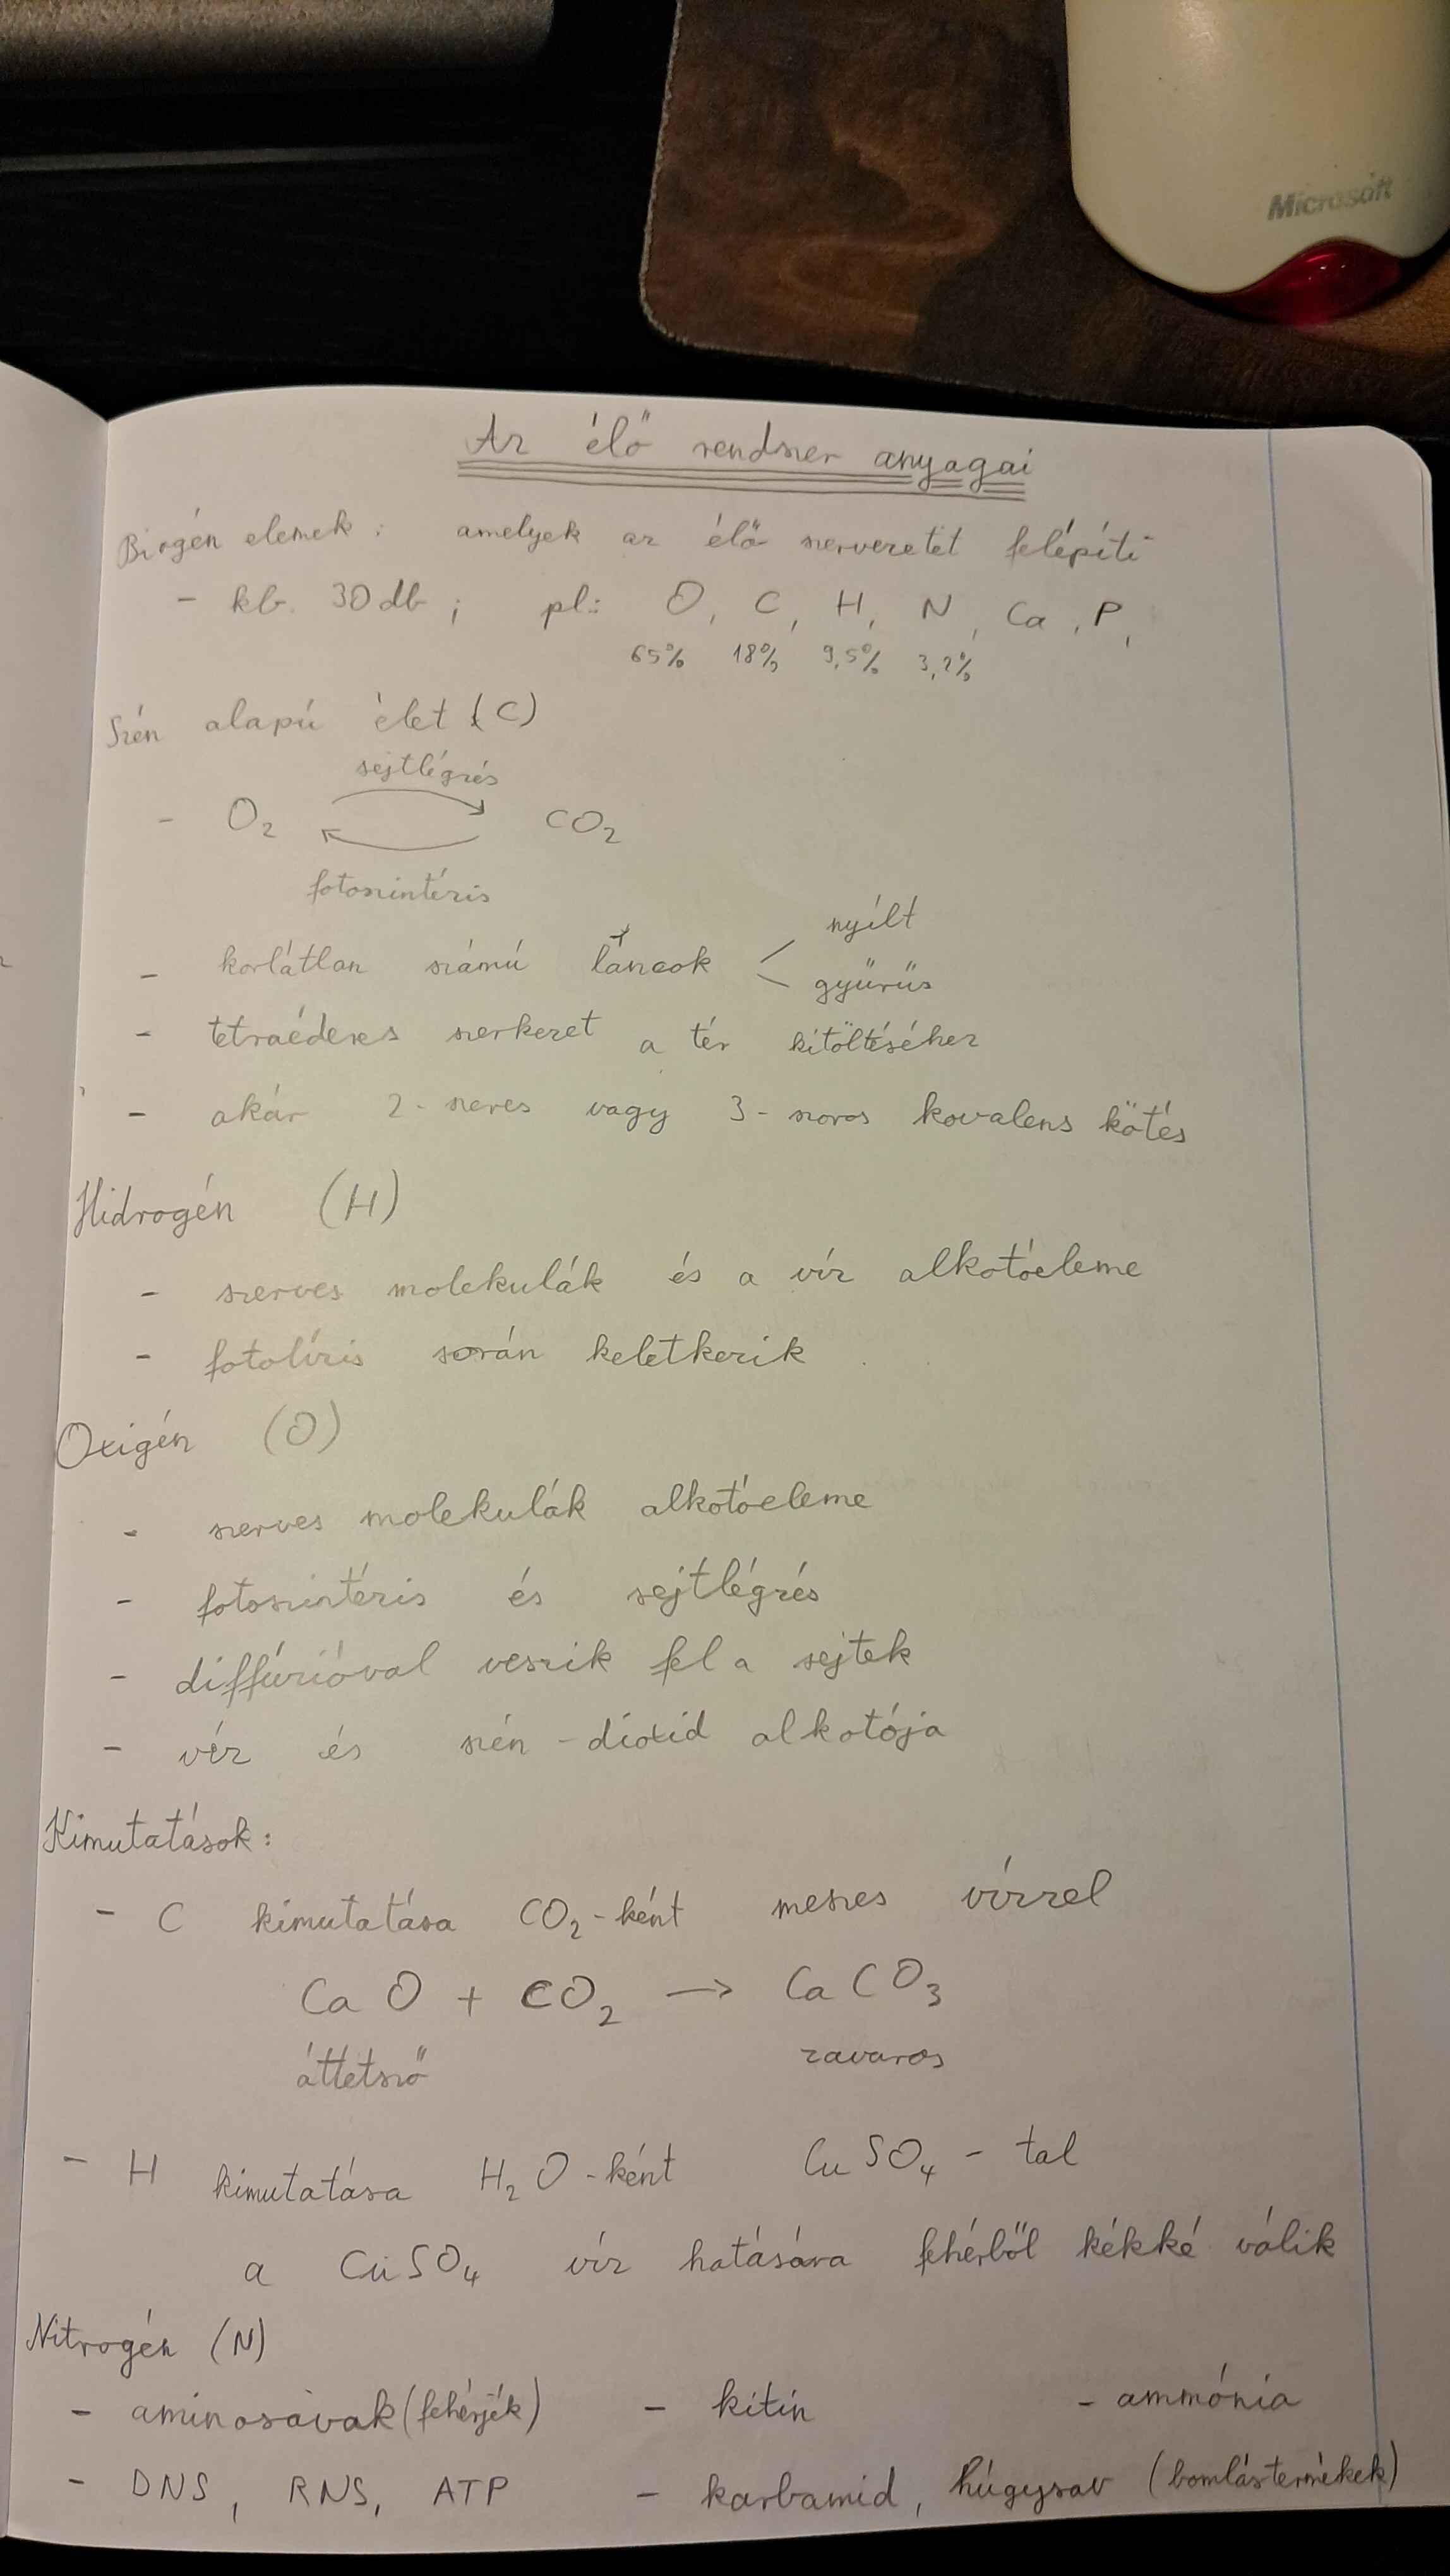 Microsoft
Az élő rendszer anyagai
Biogén elemek: amelyek az élő szervezetet felépíti
- kb. 30 db ; pl.: O, C, H, N, Ca, P,
65% 18% 9,5% 3,2%
Szén alapú élet (C)
sejtlégzés
- O₂ CO₂
fotoszintézis
nyílt
- korlátlan számú láncok <
gyűrűs
- tetraéderes szerkezet a tér kitöltéséhez
- akár 2-szeres vagy 3-szoros kovalens kötés
Hidrogén (H)
- szerves molekulák és a víz alkotóeleme
- fotolízis során keletkezik
Oxigén (O)
- szerves molekulák alkotóeleme
- fotoszintézis és sejtlégzés
- diffúzióval veszik fel a sejtek
- víz és szén-dioxid alkotója
Kimutatások:
- C kimutatása CO₂-ként meszes vízzel
CaO + CO₂ → CaCO₃
áttetsző zavaros
- H kimutatása H₂O-ként CuSO₄-tal
a CuSO₄ víz hatására fehérből kékké válik
Nitrogén (N)
- aminosavak (fehérjék) - kitin - ammónia
- DNS, RNS, ATP - karbamid, húgysav (bomlástermékek)